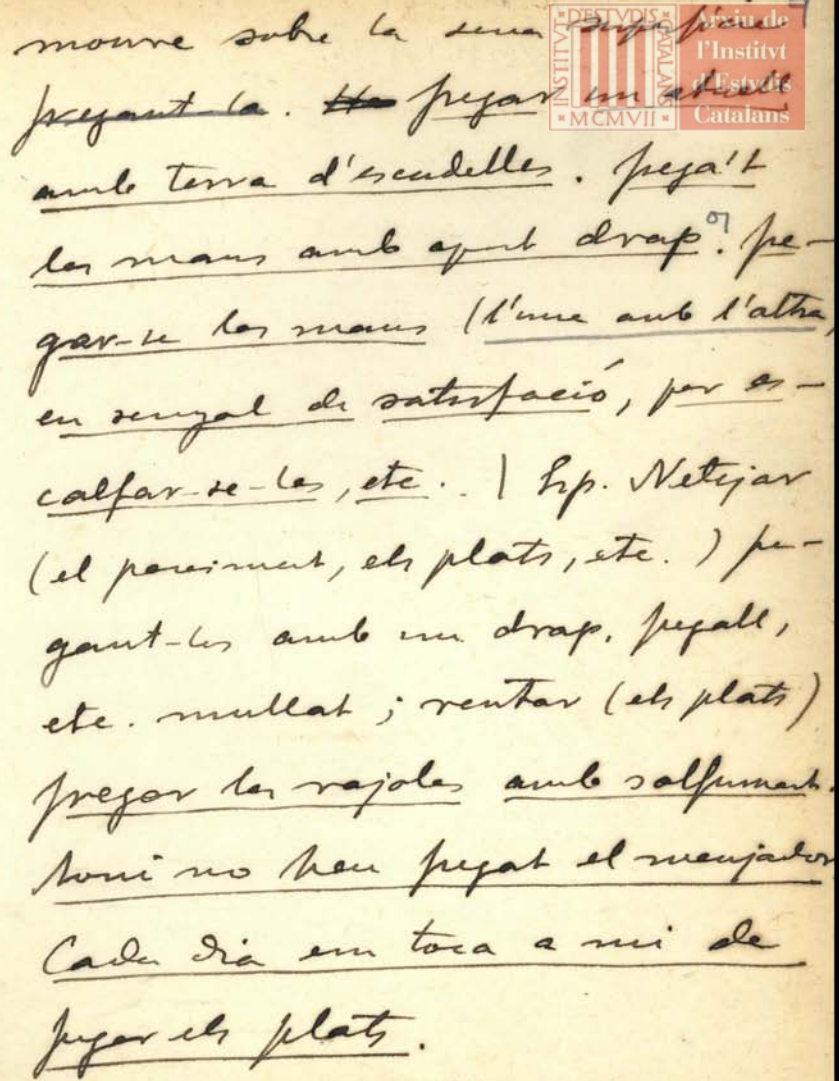 moure sobre la seva superfície
fregant-la. fregar un atuell
amb terra d'escudelles. frega't
les mans amb aquest drap. fre-
gar-se les mans (l'una amb l'altra,
en senyal de satisfacció, per es-
calfar-se-les, etc. | Esp. Netejar
(el paviment, els plats, etc.) fre-
gant-los amb un drap, fregall,
etc. mullat; rentar (els plats)
fregar les rajoles amb salfumant.
Avui no heu fregat el menjador
Cada dia em toca a mi de
fregar els plats.
INSTITVT D'ESTVDIS CATALANS
MCMVII
Arxiu de
l'Institvt
d'Estvdis
Catalans